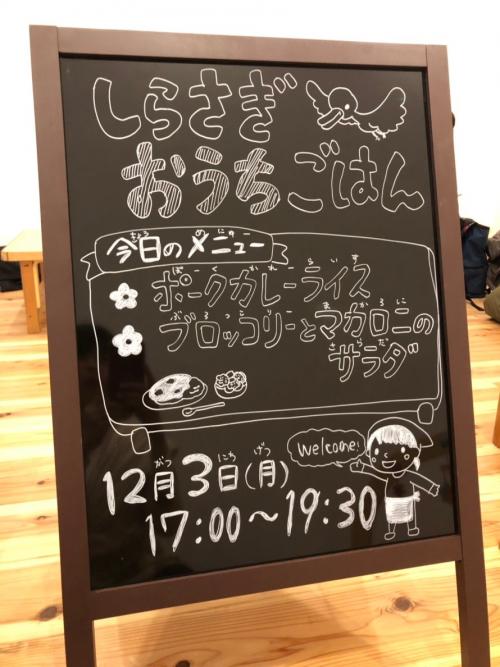 しらさぎ
おうちごはん
今日のメニュー
ポークカレーライス
ブロッコリーとマカロニの
サラダ
Welcome!
12月3日(月)
17:00〜19:30